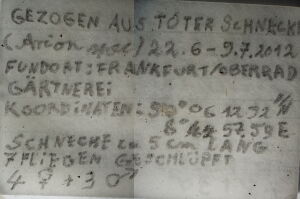 GEZOGEN AUS TOTER SCHNECKE
(Arion spec) 22.6-9.7.2012
FUNDORT: FRANKFURT/OBERRAD
GÄRTNEREI
KOORDINATEN: 50°06 1292"N
8° 44 5759E
SCHNECHE ca 5 cm LANG
7 FLIEGEN GESCHLÜPFT
4 ♀ + 3 ♂